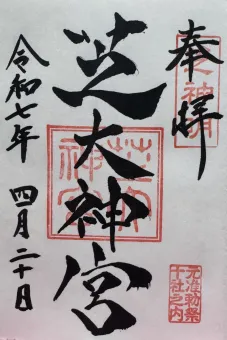 奉拝
芝神明
芝大神宮
芝大神宮
元准勅祭
十社之内
令和七年 四月二十日